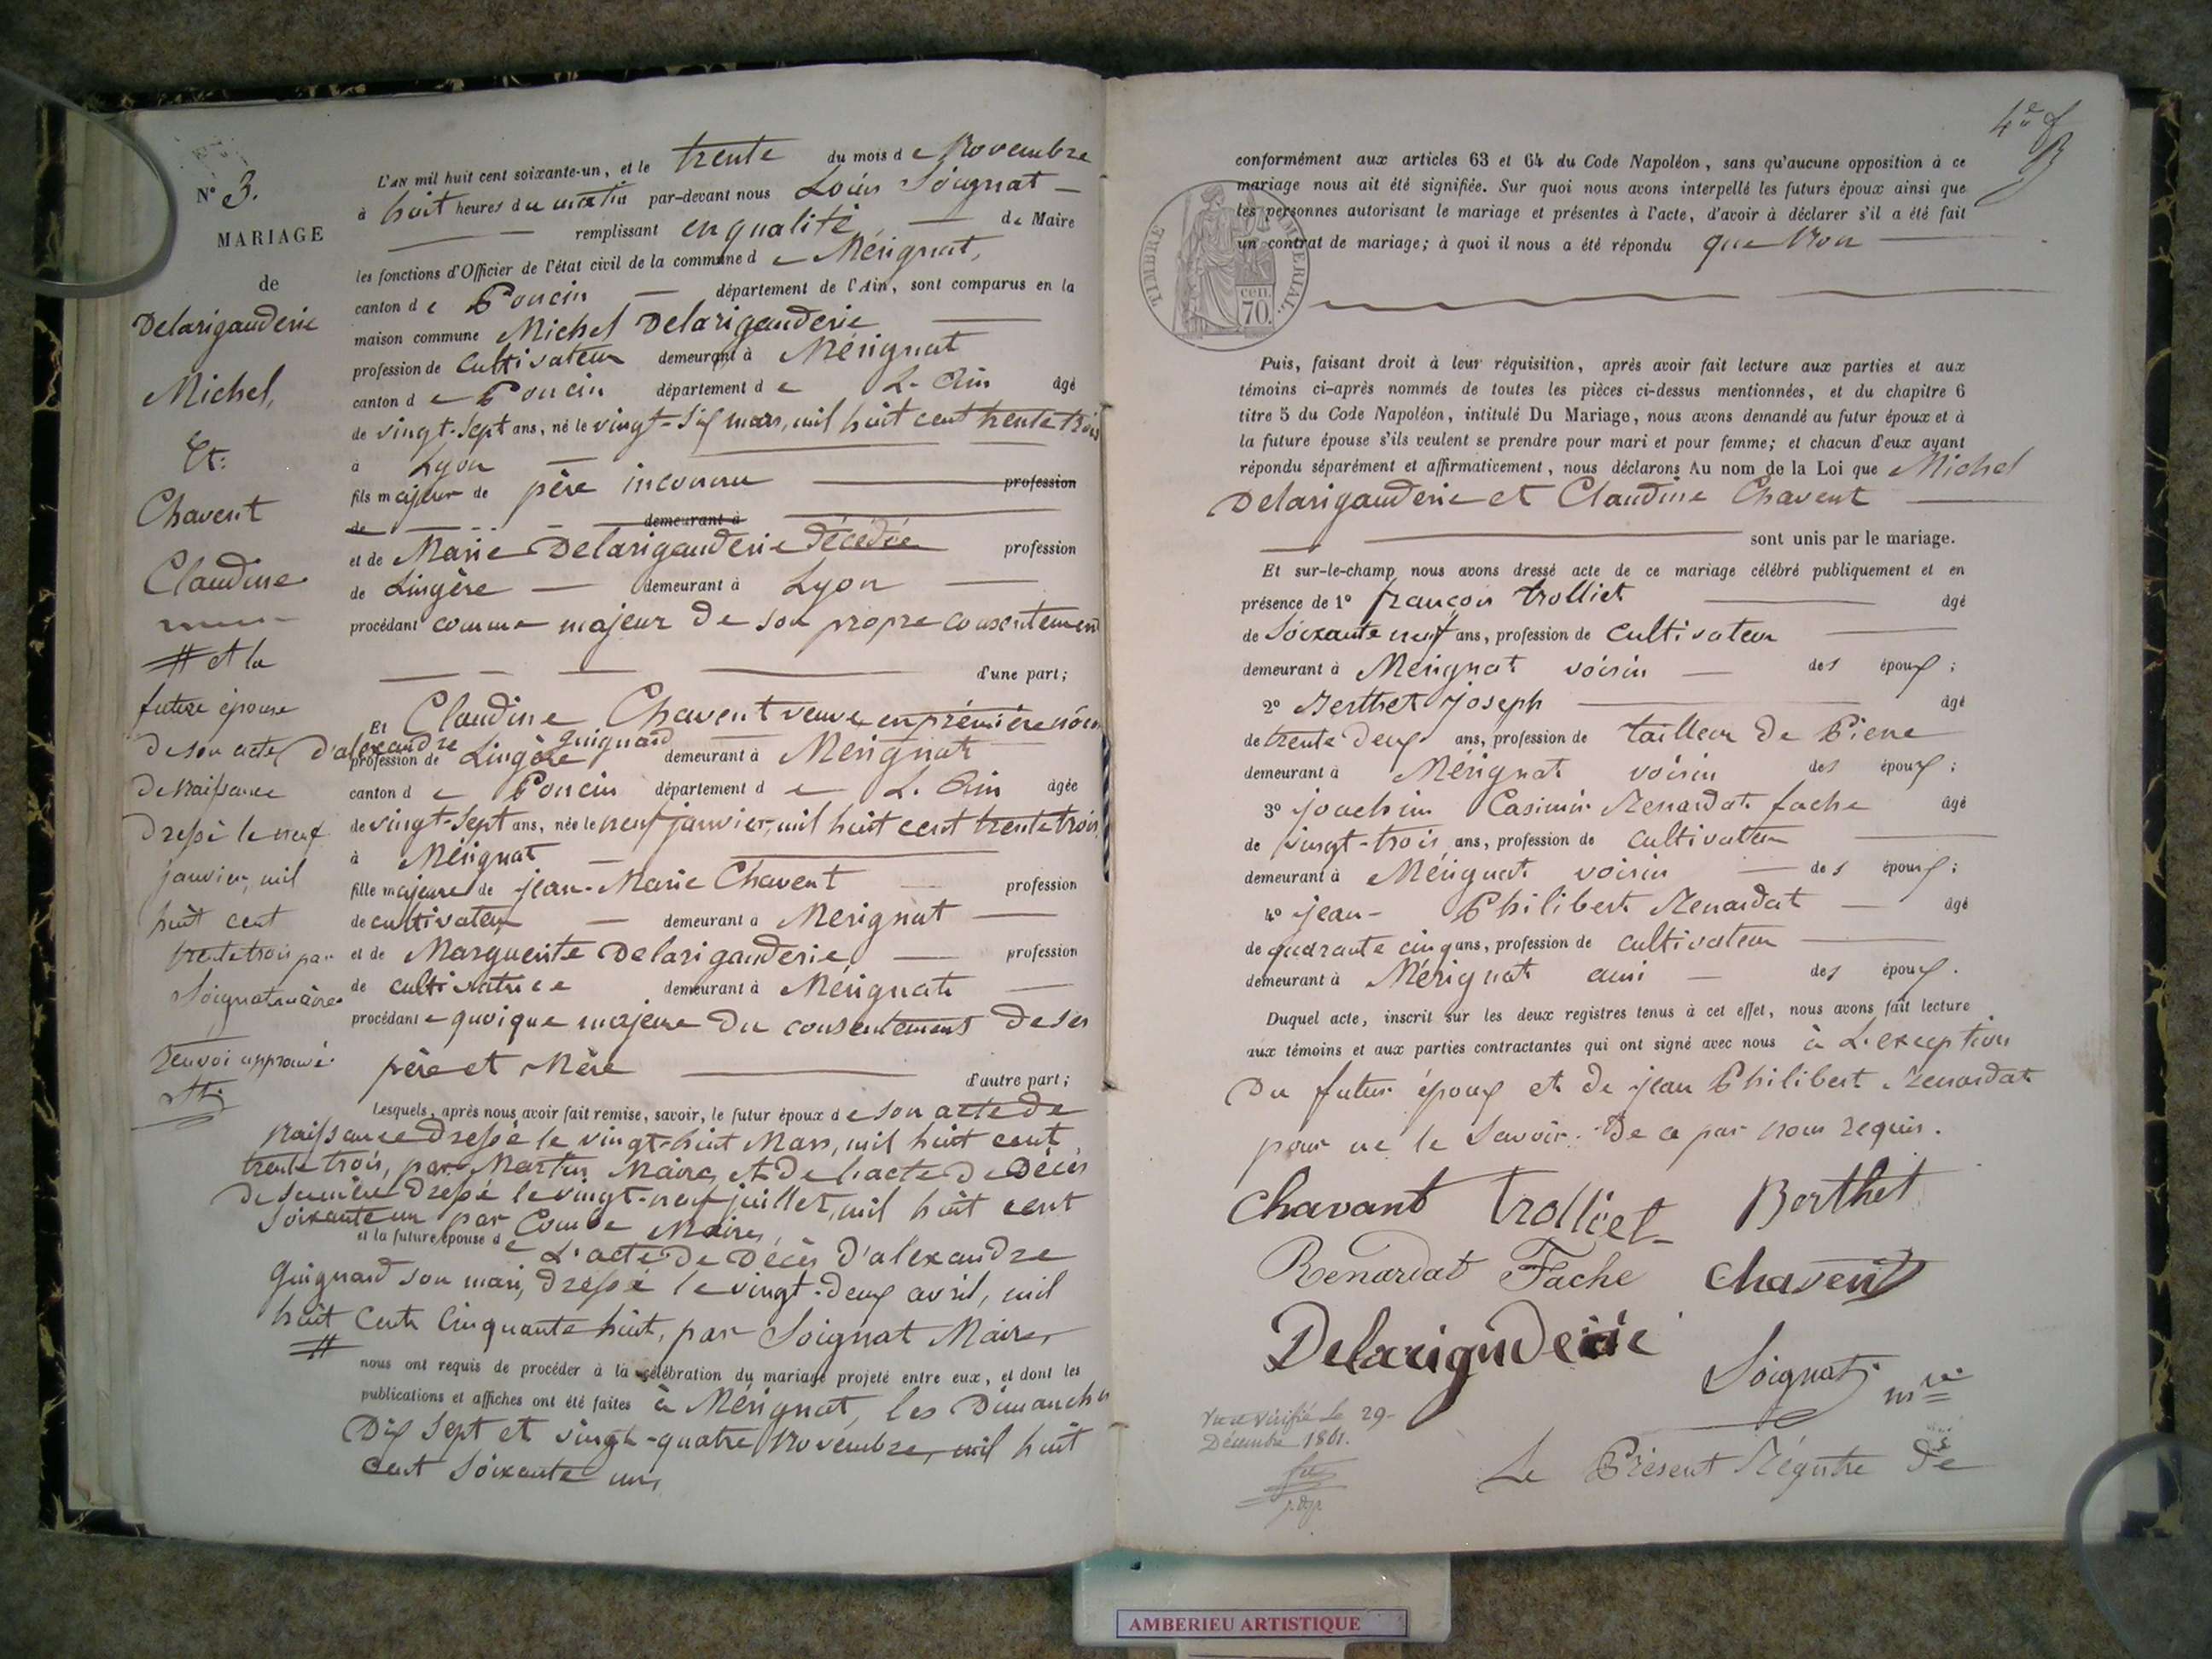 N° 3.
MARIAGE
de
Delarigauderie
Michel,
Et
Chavent
Claudine
# et la
future épouse
de son acte
de naissance
dressé le neuf
janvier, mil
huit cent
trente trois par
Soignat maire
Renvoi approuvé
L'AN mil huit cent soixante-un, et le trente du mois de Novembre
à huit heures du matin par-devant nous Louis Soignat
remplissant en qualité de Maire
les fonctions d'Officier de l'état civil de la commune de Mérignat,
canton de Poncin département de l'Ain, sont comparus en la
maison commune Michel Delarigauderie
profession de cultivateur demeurant à Mérignat
canton de Poncin département de L'Ain âgé
de vingt-sept ans, né le vingt-six mars, mil huit cent trente trois
à Lyon
fils majeur de père inconnu profession
de demeurant à
et de Marie Delarigauderie décédée profession
de Lingère demeurant à Lyon
procédant comme majeur de son propre consentement
d'une part;
Et Claudine Chavent veuve en première nôce
d'alexandre guignard
profession de Lingère demeurant à Mérignat
canton de Poncin département de L'Ain âgée
de vingt-sept ans, née le neuf janvier, mil huit cent trente trois
à Mérignat
fille majeure de jean-Marie Chavent profession
de cultivateur demeurant à Mérignat
et de Marguerite Delarigauderie profession
de cultivatrice demeurant à Mérignat
procédante quoique majeure du consentement de ses
père et Mère d'autre part;
Lesquels, après nous avoir fait remise, savoir, le futur époux de son acte de
naissance dressé le vingt-huit Mars, mil huit cent
trente trois, par Martin Maire, et de l'acte de Décès
de sa mère dressé le vingt-neuf juillet, mil huit cent
soixante un par Combe Maire,
et la future épouse de L'acte de Décès d'alexandre
Guignard son mari, dressé le vingt-deux avril, mil
huit cent cinquante huit, par Soignat Maire,
#
nous ont requis de procéder à la célébration du mariage projeté entre eux, et dont les
publications et affiches ont été faites à Mérignat, les Dimanches
Dix sept et vingt-quatre Novembre, mil huit
cent soixante un,
conformément aux articles 63 et 64 du Code Napoléon, sans qu'aucune opposition à ce
mariage nous ait été signifiée. Sur quoi nous avons interpellé les futurs époux ainsi que
les personnes autorisant le mariage et présentes à l'acte, d'avoir à déclarer s'il a été fait
un contrat de mariage; à quoi il nous a été répondu que Non
TIMBRE IMPÉRIAL.
70. cen.
Puis, faisant droit à leur réquisition, après avoir fait lecture aux parties et aux
témoins ci-après nommés de toutes les pièces ci-dessus mentionnées, et du chapitre 6
titre 5 du Code Napoléon, intitulé Du Mariage, nous avons demandé au futur époux et à
la future épouse s'ils veulent se prendre pour mari et pour femme; et chacun d'eux ayant
répondu séparément et affirmativement, nous déclarons Au nom de la Loi que Michel
Delarigauderie et Claudine Chavent
sont unis par le mariage.
Et sur-le-champ nous avons dressé acte de ce mariage célébré publiquement et en
présence de 1° françois trolliet âgé
de soixante neuf ans, profession de cultivateur
demeurant à Mérignat voisin des époux;
2° Berthet Joseph âgé
de trente deux ans, profession de tailleur de Pierre
demeurant à Mérignat voisin des époux;
3° joachim Casimir Renardat fache âgé
de vingt-trois ans, profession de cultivateur
demeurant à Mérignat voisin des époux;
4° jean-Philibert Renardat âgé
de quarante cinq ans, profession de cultivateur
demeurant à Mérignat ami des époux.
Duquel acte, inscrit sur les deux registres tenus à cet effet, nous avons fait lecture
aux témoins et aux parties contractantes qui ont signé avec nous à L'exception
du futur époux et de jean Philibert Renardat
pour ne le savoir. De ce par nous requis.
Chavant trolliet Berthet
Renardat Fache Chavent
Delarigauderie
Soignat mre
Vu et vérifié le 29
Décembre 1861.
Le Présent Régistre de
AMBERIEU ARTISTIQUE